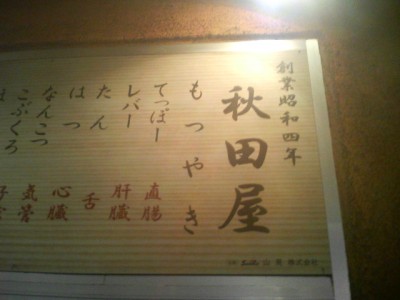 創業昭和四年
秋田屋
もつやき
てっぽー 直腸
レバー 肝臓
たん 舌
はつ 心臓
なんこつ 気管
こぶくろ 子宮
株式会社